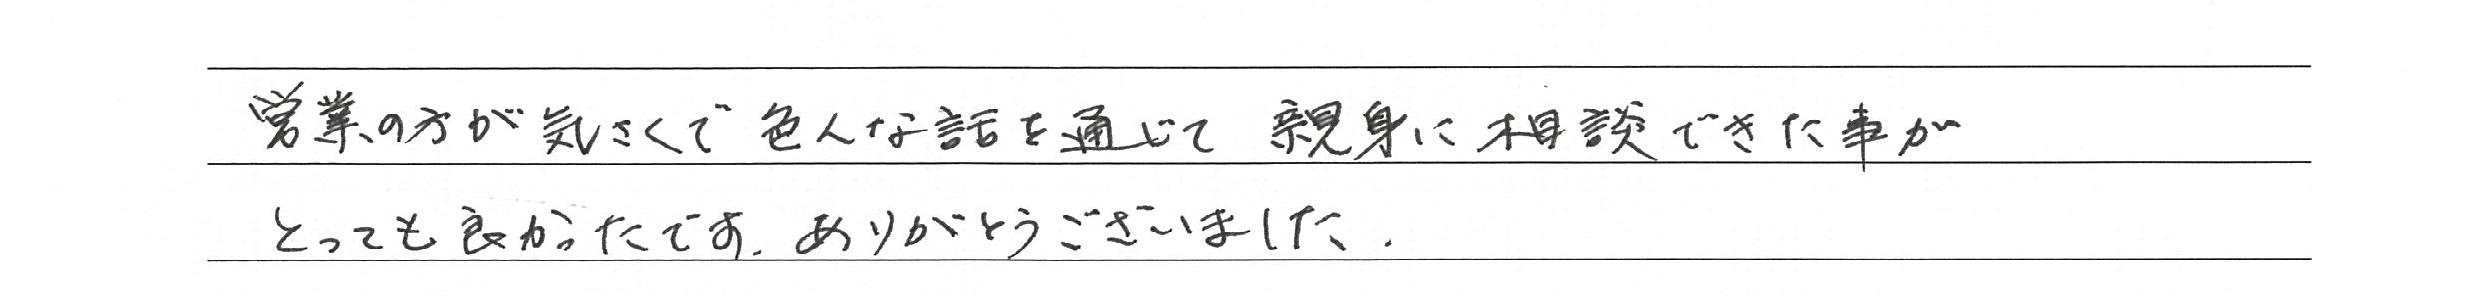 営業の方が気さくで色んな話を通じて 親身に相談できた事が
とっても良かったです.ありがとうございました.